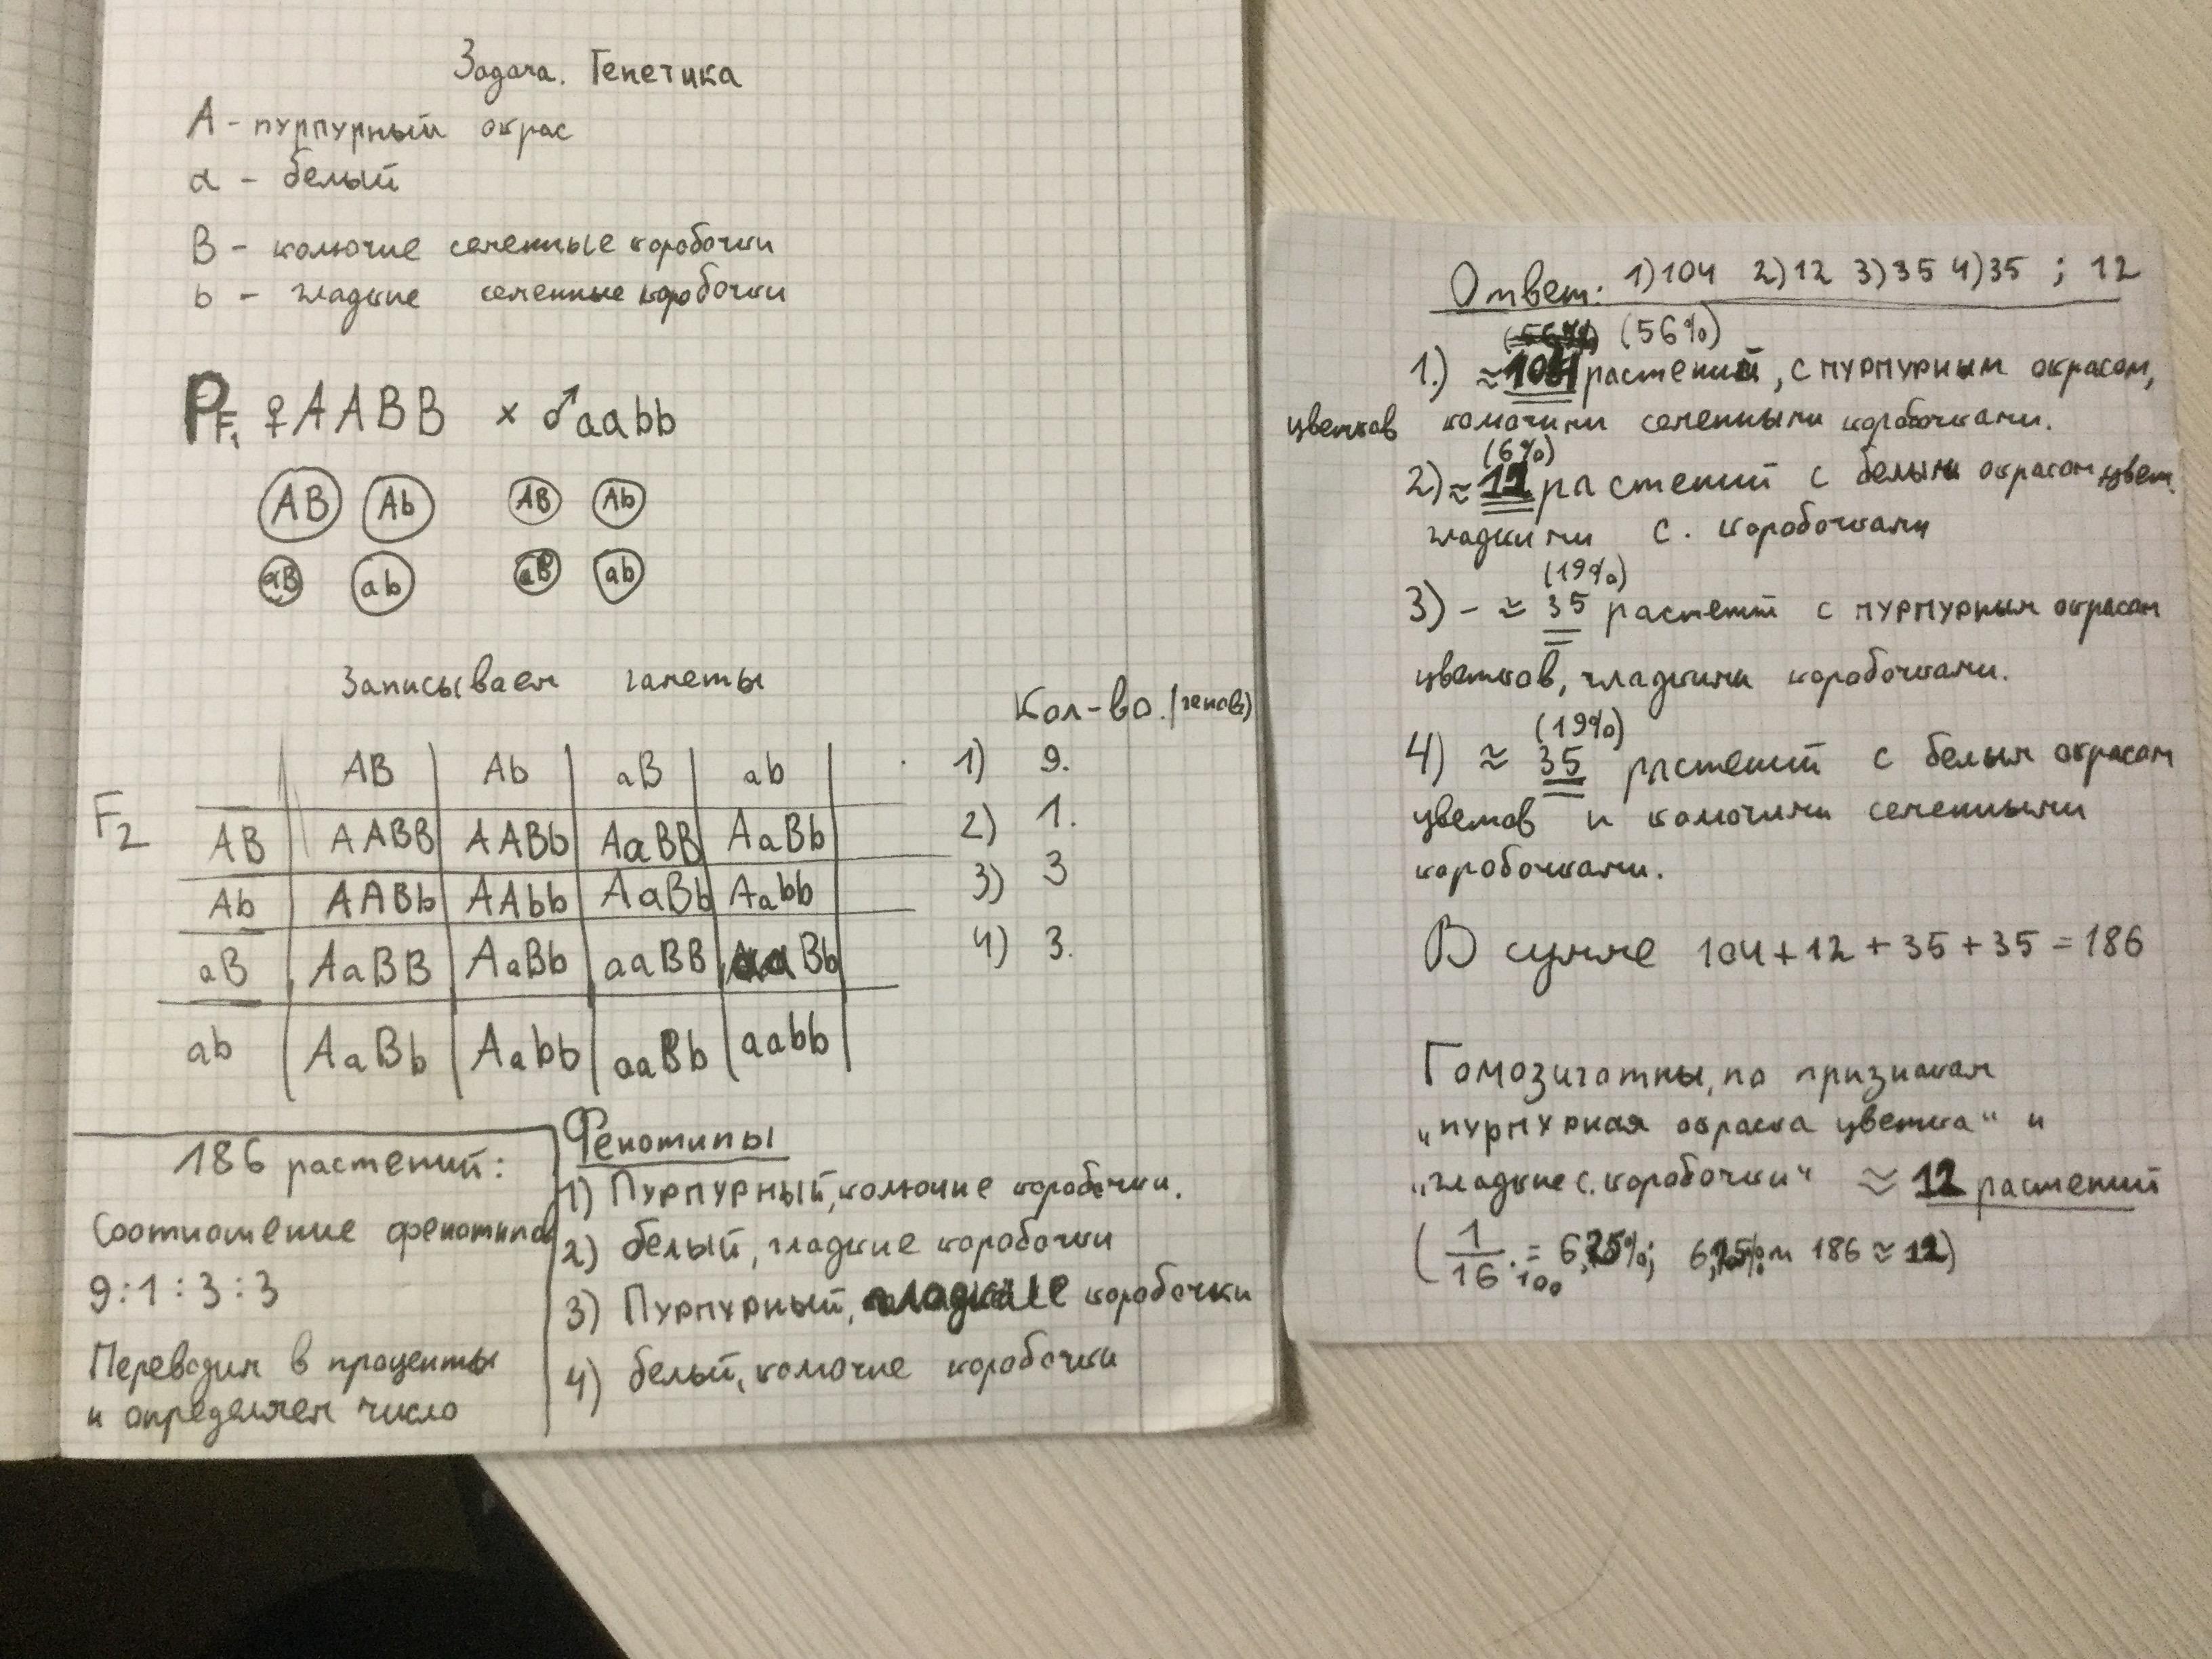 Задача. Генетика
A - пурпурный окрас
a - белый
B - колючие семенные коробочки
b - гладкие семенные коробочки
P F₁ ♀AABB × ♂aabb
AB Ab AB Ab
aB ab aB ab
Записываем гаметы
AB Ab aB ab
F₂
AB AABB AABb AaBB AaBb
Ab AABb AAbb AaBb Aabb
aB AaBB AaBb aaBB aaBb
ab AaBb Aabb aaBb aabb
Кол-во. (генов)
1) 9.
2) 1.
3) 3
4) 3.
186 растений:
Соотношение фенотипов
9:1:3:3
Переводим в проценты
и определяем число
Фенотипы
1) Пурпурный, колючие коробочки.
2) белый, гладкие коробочки
3) Пурпурный, гладкие коробочки
4) белый, колючие коробочки
Ответ: 1)104 2)12 3)35 4)35 ; 12
(56%)
1.) ≈104 растений, с пурпурным окрасом,
цветков колючими семенными коробочками.
(6%)
2) ≈ 12 растений с белым окрасом цвет.
гладкими с. коробочками
(19%)
3) - ≈ 35 растений с пурпурным окрасом
цветков, гладкими коробочками.
(19%)
4) ≈ 35 растений с белым окрасом
цветков и колючими семенными
коробочками.
В сумме 104+12+35+35=186
Гомозиготны, по признакам
"пурпурная окраска цветка" и
"гладкие с. коробочки" ≈ 12 растений
(1/16 · 100 = 6,25%; 6,25% от 186 ≈ 12)